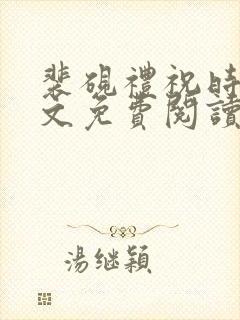 裴硯禮祝時
文免費閱讀
湯継穎